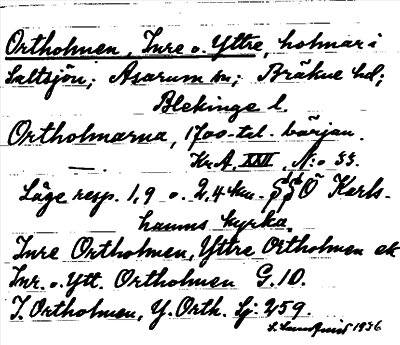 Ortholmen, Inre o. Yttre, holmar i
Saltsjön; Asarum sn; Bräkne hd;
Blekinge l.
Ortholmarna, 1700-tal. början.
Kr.A. XXII. N:o 33.
Läge resp. 1,9 o. 2,4 km. SSÖ Karls-
hamns kyrka.
Inre Ortholmen, Yttre Ortholmen ek
Inr. o. Ytt. Ortholmen G.10.
I. Ortholmen, Y. Orth. Sj. 259.
S. Lundquist 1936